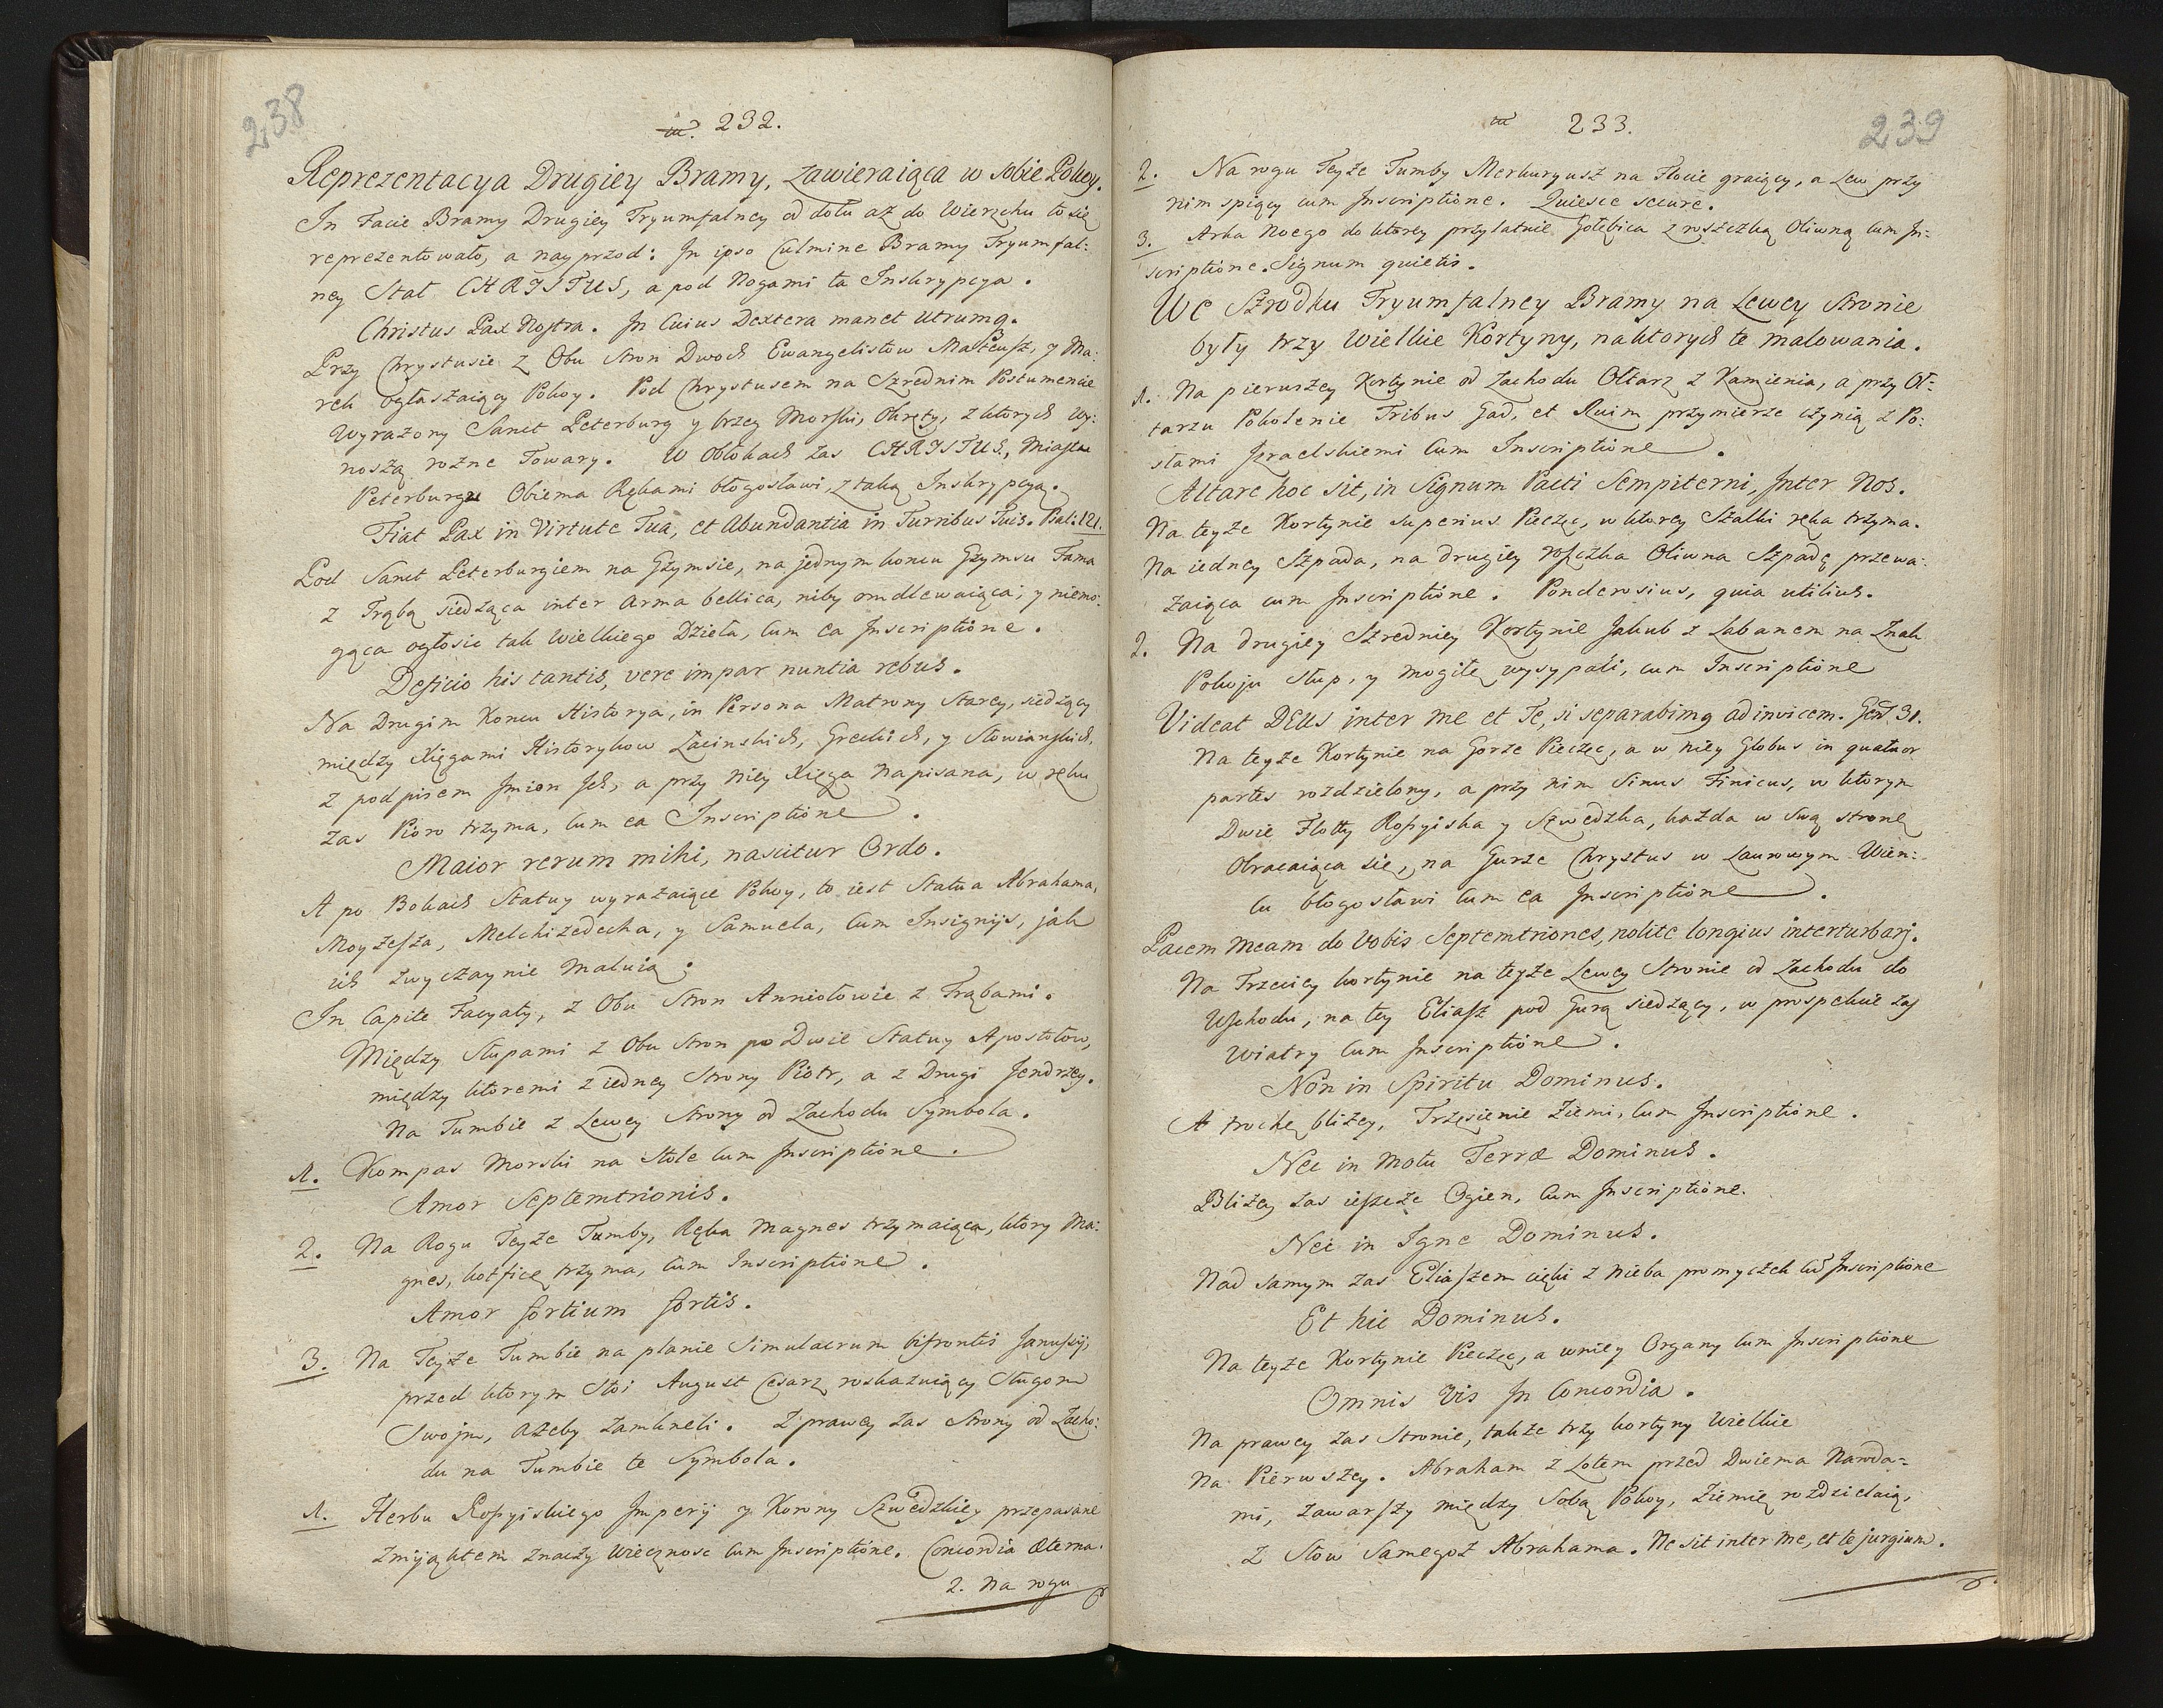 238
232.
Reprezentacya Drugiey Bramy, zawieraiąca w sobie Pokoy.
In Facie Bramy Drugiey Tryumfalney od dołu aż do Wierzchu to się
reprezentowało, a nayprzod: In ipso Culmine Bramy Tryumfal:
ney Stał CHRISTUS, a pod Nogami ta Inskrypcya.
Christus Pax Nostra. In Cuius Dextera manet utrumq.
Przy Chrystusie z Obu stron Dwoch Ewangelistow Mateusz, y Ma:
rek ogłaszaiący Pokoy. Pod Chrystusem na Szrednim Postumencie
Wyrażony Sanct Peterburg y brzeg Morski, Okręty, z ktorych wy:
noszą rożne Towary. W Obłokach zas CHRISTUS, Miastu
Peterburgu Obiema Rękami błogosławi, z taką Inskrypcyą.
Fiat Pax in Virtute Tua, et Abundantia in Turribus Tuis. Psal: 121.
Pod Sanct Peterburgiem na Gzymsie, na jednym koncu Gzymsu Fama
z Trąbą siedząca inter Arma bellica, niby omdlewaiąca, y niemo:
gąca ogłosic tak Wielkiego Dzieła, cum ea Inscriptione.
Deficio his tantis, vere impar nuntia rebus.
Na Drugim Koncu Historya, in Persona Matrony Starey, siedzący
między Xięgami Historykow Łacinskich, Greckich, y Słowianskich,
z podpisem Jmion Jch, a przy niey Xięga Napisana, w ręku
zas Pioro trzyma, cum ea Inscriptione.
Maior rerum mihi, nascitur Ordo.
A po Bokach Statuy wyrażaiące Pokoy, to iest Statua Abrahama,
Moyżesza, Melchizedecha, y Samuela, cum Insignijs, jak
ich zwyczaynie maluią.
In Capite Facyaty, z Obu Stron Anniołowie z Trąbami.
Między Słupami z Obu stron po Dwie Statuy Apostołow,
między ktoremi z iedney Strony Piotr, a z Drugi Jendrzey.
Na Tumbie z Lewey Strony od Zachodu Symbola.
1. Kompas Morski na Stole cum Inscriptione.
Amor Septemtrionis.
2. Na Rogu Teyże Tumby, Ręka Magnes trzymaiąca, ktory Ma:
gnes, kotficę trzyma, cum Inscriptione.
Amor fortium fortis.
3. Na Teyże Tumbie na planie Simulacrum bifrontis Janusij,
przed ktorym stoi August Cesarz roskazuiący Sługom
Swojm, ażeby zamkneli. Z prawey zas Strony od Zacho:
du na Tumbie te Symbola.
1. Herbu Rossyiskiego Jmperij y Korony Szwedzkiey przepasane
Zmiją, ktem znaczy wiecznosc cum Inscriptione. Concordia Æterna.
2. Na rogu
239
233.
2. Na rogu Teyże Tumby Merkuryusz na Flocie graiący, a Lew przy
nim spiący cum Inscriptione. Quiesce secure.
3. Arka Noego do ktorey przylatuie Gołębica z roszczką Oliwną cum In:
scriptione. Signum quietis.
We Szrodku Tryumfalney Bramy na Lewey Stronie
były trzy Wielkie Kortyny, na ktorych te malowania.
1. Na pierwszey Kortynie od Zachodu Ołtarz z Kamienia, a przy Oł:
tarzu Pokolenie Tribus Gad, et Ruim przymierze czynią z Po:
słami Jzraelskiemi cum Inscriptione.
Altare hoc sit, in Signum Pacti Sempiterni, Inter Nos.
Na teyże Kortynie superius Pieczęc, w ktorey Szalki ręka trzyma.
Na iedney Szpada, na drugiey roszczka Oliwna Szpadę przewa:
żaiąca cum Inscriptione. Ponderosius, quia utilius.
2. Na drugiey Szredniey Kortynie Jakub z Labanem na Znak
Pokoju słup, y mogiłę wysypali, cum Inscriptione
Videat DEUS inter me et Te, si separabimq ad invicem. Gen 31.
Na teyże Kortynie na Gorze Pieczęc, a w niey Globus in quatuor
partes rozdzielony, a przy nim Sinus Finicus, w ktorym
Dwie Flotty Rossyiska y Szwedzka, każda w swą stronę
Obracaiąca się, na Gurze Chrystus w Laurowym Wien:
cu błogosławi cum ea Inscriptione.
Pacem meam do Vobis Septemtriones, nolite longius interturbarj.
Na Trzeciey kortynie na teyże Lewey Stronie od Zachodu do
Wschodu, na tey Eliasz pod Gurą siedzący, w prospekcie zas
wiatry cum Inscriptione.
Non in Spiritu Dominus.
A trochę bliżey, Trzęsienie Ziemi, cum Inscriptione.
Nec in Motu Terræ Dominus.
Bliżey zas ieszcze Ogien, cum Inscriptione.
Nec in Igne Dominus.
Nad samym zas Eliaszem cięki z Nieba promyczek cu Inscriptione
Et hic Dominus.
Na teyże Kortynie Pieczęc, a w niey Organy cum Inscriptione
Omnis Vis In Concordia.
Na prawey zas Stronie, także trzy kortyny Wielkie
Na Pierwszey. Abraham z Lotem przed Dwiema Naroda=
mi, zawarszy między Sobą Pokoy, Ziemię rozdzielaią,
z Słow Samegoż Abrahama. Ne sit inter me, et te jurgium.